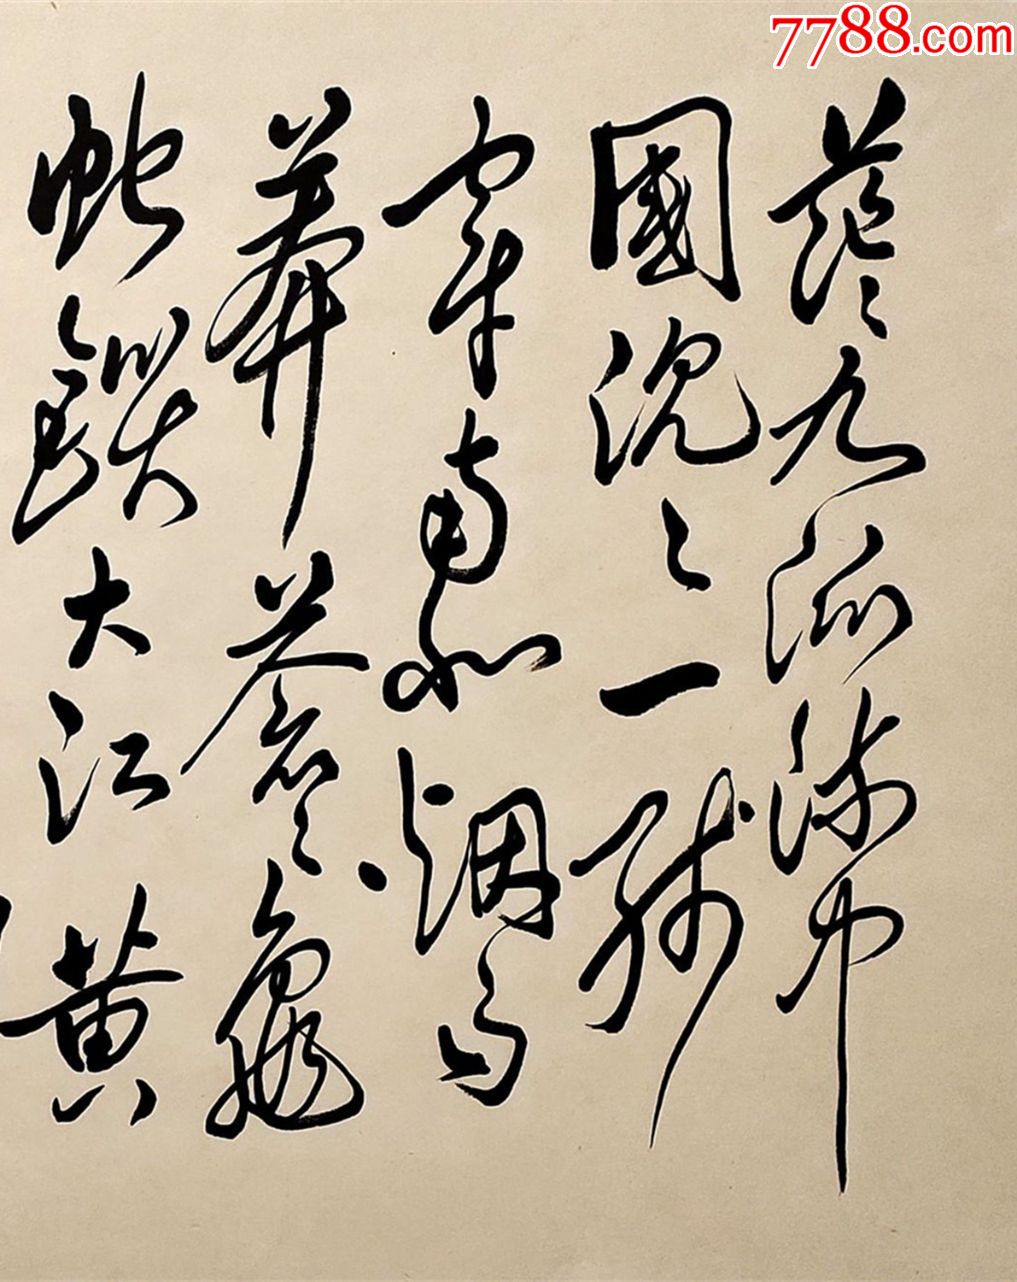 茫々九派流中
國沉々一線
穿南北烟雨
莽蒼々龜
蛇鎖大江黃
7788.com